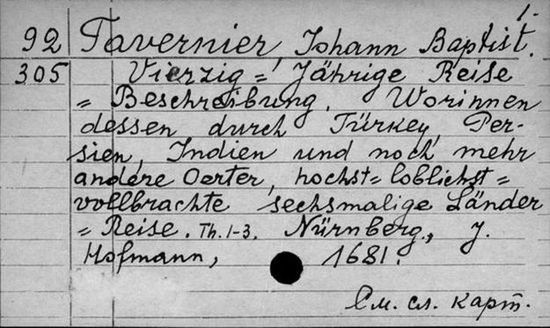 1.
92 Tavernier, Johann Baptist.
305 Vierzig = Jährige Reise
= Beschreibung. Worinnen
dessen durch Türkey, Per-
sien, Indien und noch mehr
andere Oerter, höchst = löblichst =
vollbrachte sechsmalige Länder
= Reise. Th. 1-3. Nürnberg, J.
Hofmann, 1681.
См. сл. карт.